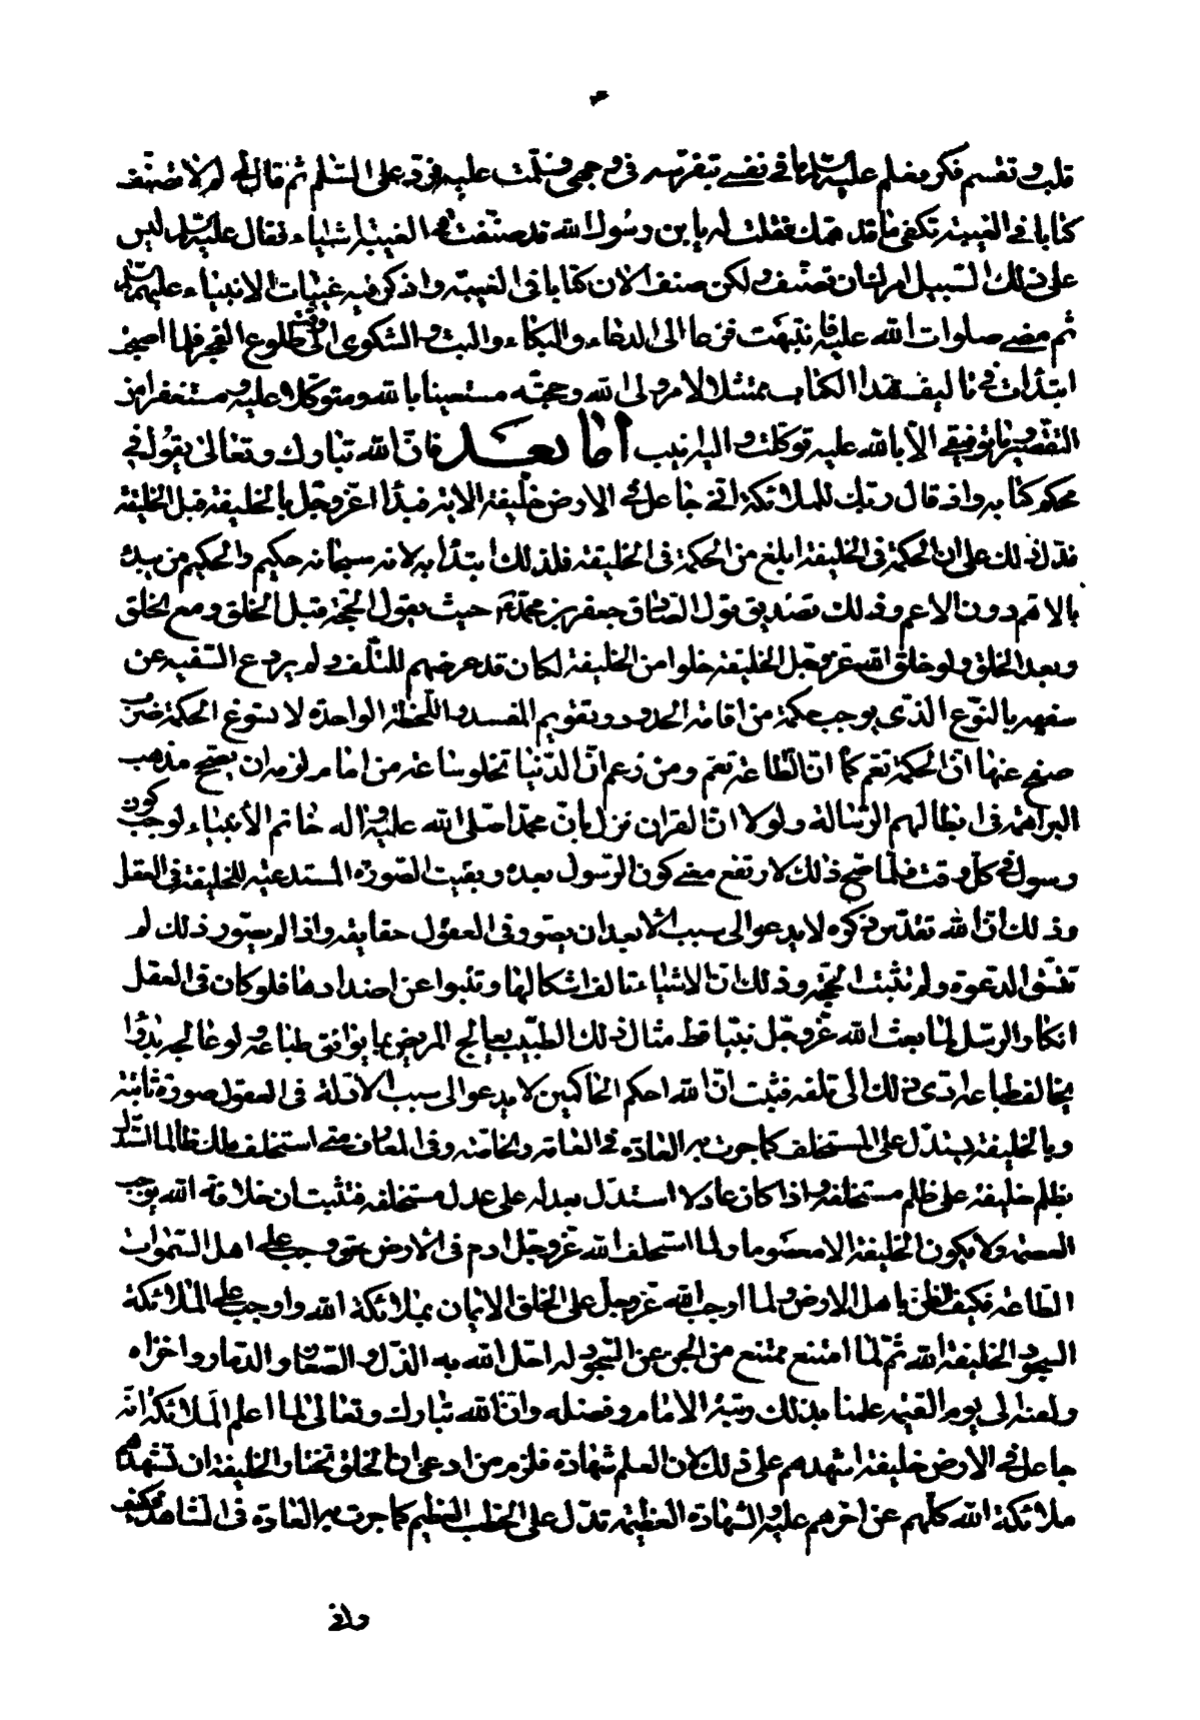 قلب وتقسم فكر فعلم عليه السلام ما في نفسي بتفرسه في وجهي فسلمت عليه فرد علي السلم ثم قال لي لم لا تصنف
كتابا في الغيبة تكفي ما قد همك فقلت له يا بن رسول الله قد صنفت في الغيبة اشياء فقال عليه السلام ليس
على ذلك السبيل امرك ان تصنف ولكن صنف الان كتابا في الغيبة واذكر فيه غيبات الانبياء عليهم السلم
ثم مضى صلوات الله عليه فانتبهت فزعا الى الدعاء والبكاء والبث والشكوى الى وقت طلوع الفجر فلما اصبحت
ابتدأت في تاليف هذا الكتاب ممتثلا لامر ولي الله وحجته مستعينا بالله ومتوكلا عليه ومستغفرا من
التقصير وما توفيقي الا بالله عليه توكلت واليه انيب اما بعد فان الله تبارك وتعالى يقول في
محكم كتابه واذ قال ربك للملائكة اني جاعل في الارض خليفة الاية فبدأ عز وجل بالخليفة قبل الخليقة
فدل ذلك على ان الحكمة في الخليفة ابلغ من الحكمة في الخليقة فلذلك ابتدأ به لانه سبحانه حكيم والحكيم من يبدء
بالاهم دون الاعم وذلك تصديق قول الصادق جعفر بن محمد ع حيث يقول الحجة قبل الخلق ومع الخلق
وبعد الخلق ولو خلق الله عز وجل الخليقة خلوا من الخليفة لكان قد عرضهم للتلف ولم يردع السفيه عن
سفهه بالنوع الذي يوجب حكمة من اقامة الحدود وتقويم المفسد واللحظة الواحدة لا تسوغ الحكمة ضرب
صفح عنها ان الحكمة تعم كما ان الطاعة تعم ومن زعم ان الدنيا تخلو ساعة من امام لزمه ان يصحح مذهب
البراهمة في ابطالهم الرسالة ولولا ان القران نزل بان محمدا صلى الله عليه واله خاتم الأنبياء لوجب كون
رسول في كل وقت فلما صح ذلك لارتفع معنى كون الرسول بعده وبقيت الصورة المستدعية للخليفة في العقل
وذلك ان الله تقدس ذكره لا يدعو الى سبب الا بعد ان يصور في العقول حقايقه واذا لم يصور ذلك لم
تتسق الدعوة ولم تثبت الحجة وذلك ان الاشياء تالف اشكالها وتنبوا عن اضدادها فلو كان في العقل
انكار الرسل لما بعث الله عز وجل نبيا قط مثال ذلك الطبيب يعالج المريض بما يوافق طباعه ولو عالجه بدواء
يخالف طباعه ادى ذلك الى تلفه فثبت ان الله احكم الحاكمين لا يدعو الى سبب الا وله في العقول صورة ثابتة
وبالخليفة يستدل على المستخلف كما جرت به العادة في العامة والخاصة وفي المتعارف متى استخلف ملك ظالما استدل
بظلم خليفته على ظلم مستخلفه واذا كان عادلا استدل بعدله على عدل مستخلفه فثبت ان خلافة الله توجب
العصمة ولا يكون الخليفة الا معصوما ولما استخلف الله عز وجل ادم في الارض وجب على اهل السموات
الطاعة له فكيف الظن باهل الارض ولما اوجب الله عز وجل على الخلق الايمان بملائكة الله واوجب على الملائكة
السجود لخليفة الله ثم لما امتنع ممتنع من الجن عن السجود له احل الله به الذل والصغار والدمار واخزاه
ولعنه الى يوم القيمة علمنا بذلك رتبة الامام وفضله وان الله تبارك وتعالى لما اعلم الملائكة انه
جاعل في الارض خليفة اشهدهم على ذلك لان العلم شهادة فلزم من ادعى ان الخلق تختار الخليفة ان تشهد
ملائكة الله كلهم عن اخرهم عليه والشهادة العظيمة تدل على الخطب العظيم كما جرت به العادة في الشاهد فكيف
واني